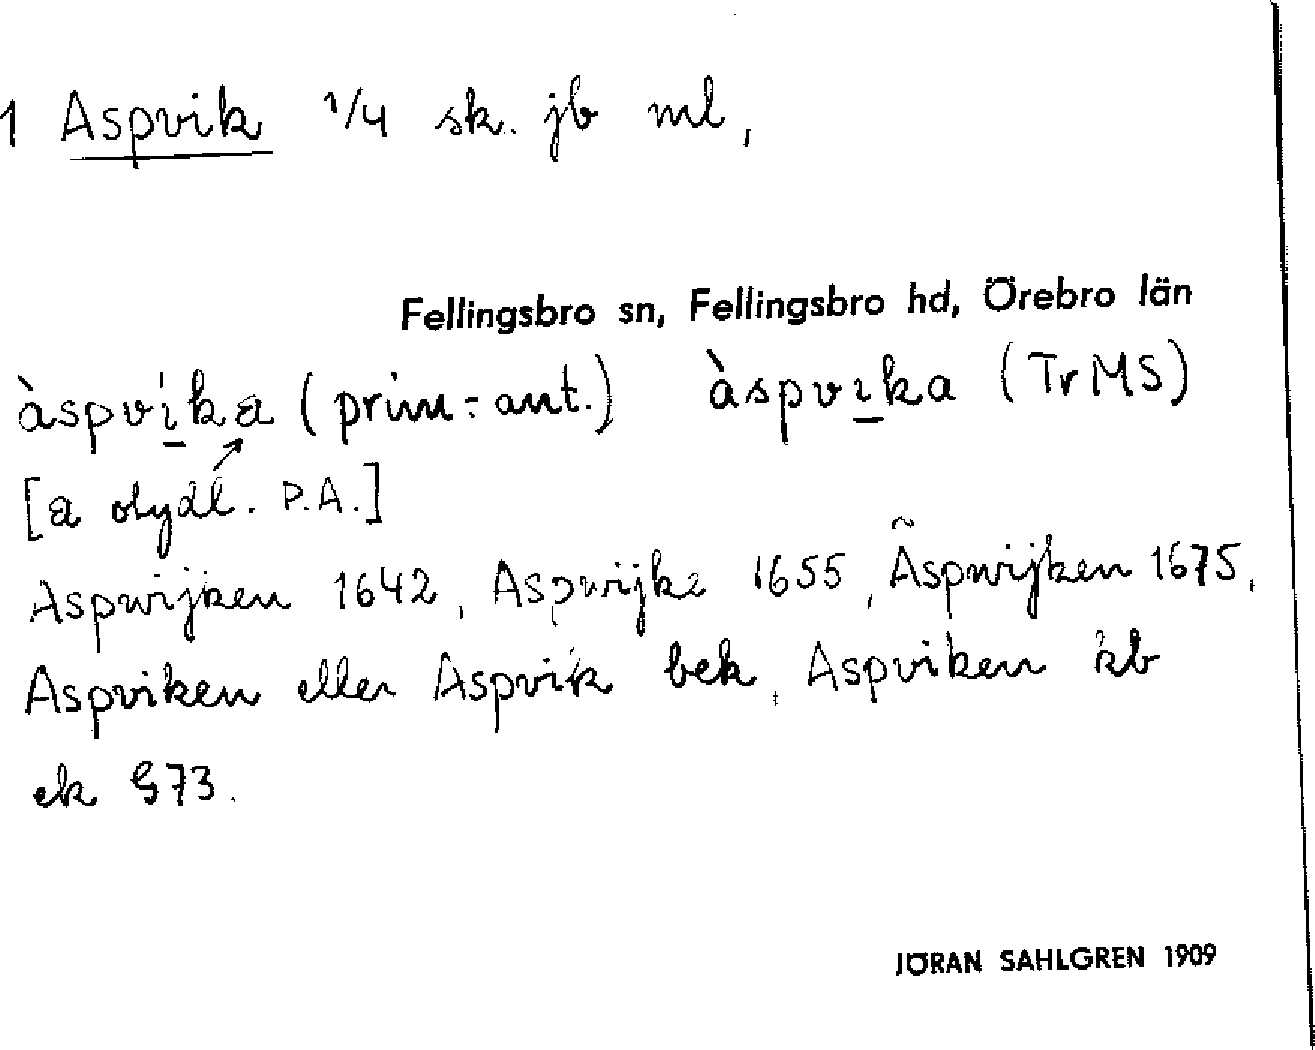 1 Aspvik 1/4 sk. jb ml,
Fellingsbro sn, Fellingsbro hd, Örebro län
àspvika (prim.-ant.) àspvika (TrMS)
[a otydl. P.A.]
Aspwijken 1642, Aspwijke 1655, Ãspwijken 1675,
Aspviken eller Aspvik bek, Aspviken kb
ek G73.
JÖRAN SAHLGREN 1909